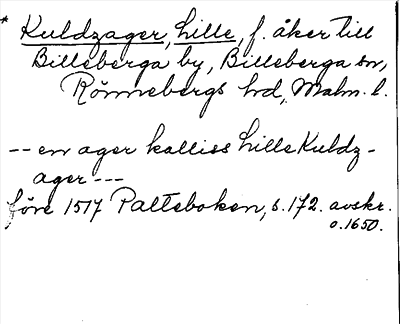 * Kuldzager, hille, f. åker till
Billeberga by, Billeberga sn,
Rönnebergs hd, Malm. l.
-- en ager kalliss hille Kuldz-
ager ---
före 1517 Palteboken, s. 172. avskr.
o. 1650.